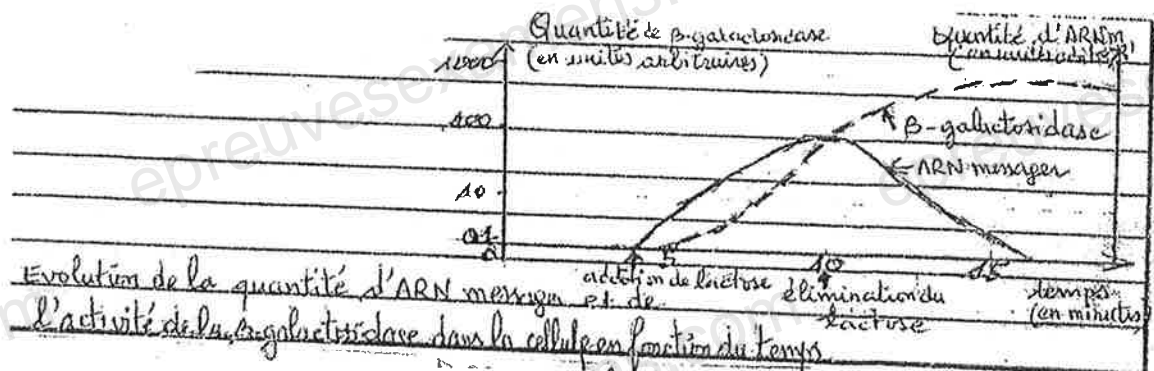 Quantité de β-galactosidase
(en unités arbitraires)
Quantité d'ARNm
1000
β-galactosidase
100
ARN messager
10
0,1
0
5
10
15
addition de lactose
élimination du
lactose
temps
(en minutes)
Evolution de la quantité d'ARN messager et de
l'activité de la β-galactosidase dans la cellule en fonction du temps
epreuvesexamens